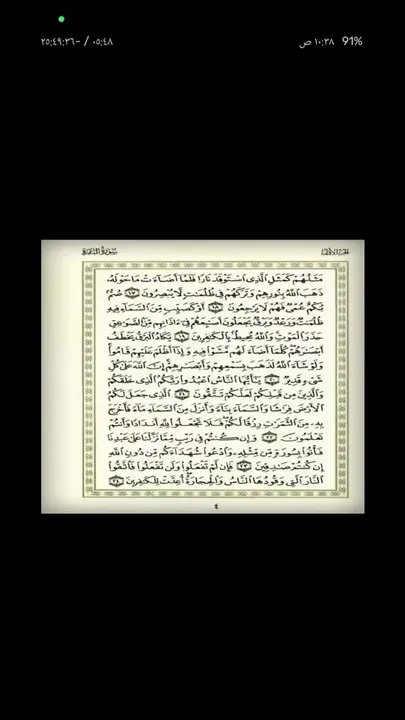 ٢٥:٤٩:٣٦- / ٠٥:٤٨
١٠:٣٨ ص 91%
سورة البقرة
الجزء الأول
مَثَلُهُمْ كَمَثَلِ الَّذِي اسْتَوْقَدَ نَارًا فَلَمَّا أَضَاءَتْ مَا حَوْلَهُ
ذَهَبَ اللَّهُ بِنُورِهِمْ وَتَرَكَهُمْ فِي ظُلُمَاتٍ لَا يُبْصِرُونَ ١٧ صُمٌّ
بُكْمٌ عُمْيٌ فَهُمْ لَا يَرْجِعُونَ ١٨ أَوْ كَصَيِّبٍ مِنَ السَّمَاءِ فِيهِ
ظُلُمَاتٌ وَرَعْدٌ وَبَرْقٌ يَجْعَلُونَ أَصَابِعَهُمْ فِي آذَانِهِمْ مِنَ الصَّوَاعِقِ
حَذَرَ الْمَوْتِ وَاللَّهُ مُحِيطٌ بِالْكَافِرِينَ ١٩ يَكَادُ الْبَرْقُ يَخْطَفُ
أَبْصَارَهُمْ كُلَّمَا أَضَاءَ لَهُمْ مَشَوْا فِيهِ وَإِذَا أَظْلَمَ عَلَيْهِمْ قَامُوا
وَلَوْ شَاءَ اللَّهُ لَذَهَبَ بِسَمْعِهِمْ وَأَبْصَارِهِمْ إِنَّ اللَّهَ عَلَى كُلِّ
شَيْءٍ قَدِيرٌ ٢٠ يَا أَيُّهَا النَّاسُ اعْبُدُوا رَبَّكُمُ الَّذِي خَلَقَكُمْ
وَالَّذِينَ مِنْ قَبْلِكُمْ لَعَلَّكُمْ تَتَّقُونَ ٢١ الَّذِي جَعَلَ لَكُمُ
الْأَرْضَ فِرَاشًا وَالسَّمَاءَ بِنَاءً وَأَنْزَلَ مِنَ السَّمَاءِ مَاءً فَأَخْرَجَ
بِهِ مِنَ الثَّمَرَاتِ رِزْقًا لَكُمْ فَلَا تَجْعَلُوا لِلَّهِ أَنْدَادًا وَأَنْتُمْ
تَعْلَمُونَ ٢٢ وَإِنْ كُنْتُمْ فِي رَيْبٍ مِمَّا نَزَّلْنَا عَلَى عَبْدِنَا
فَأْتُوا بِسُورَةٍ مِنْ مِثْلِهِ وَادْعُوا شُهَدَاءَكُمْ مِنْ دُونِ اللَّهِ
إِنْ كُنْتُمْ صَادِقِينَ ٢٣ فَإِنْ لَمْ تَفْعَلُوا وَلَنْ تَفْعَلُوا فَاتَّقُوا
النَّارَ الَّتِي وَقُودُهَا النَّاسُ وَالْحِجَارَةُ أُعِدَّتْ لِلْكَافِرِينَ ٢٤
٤